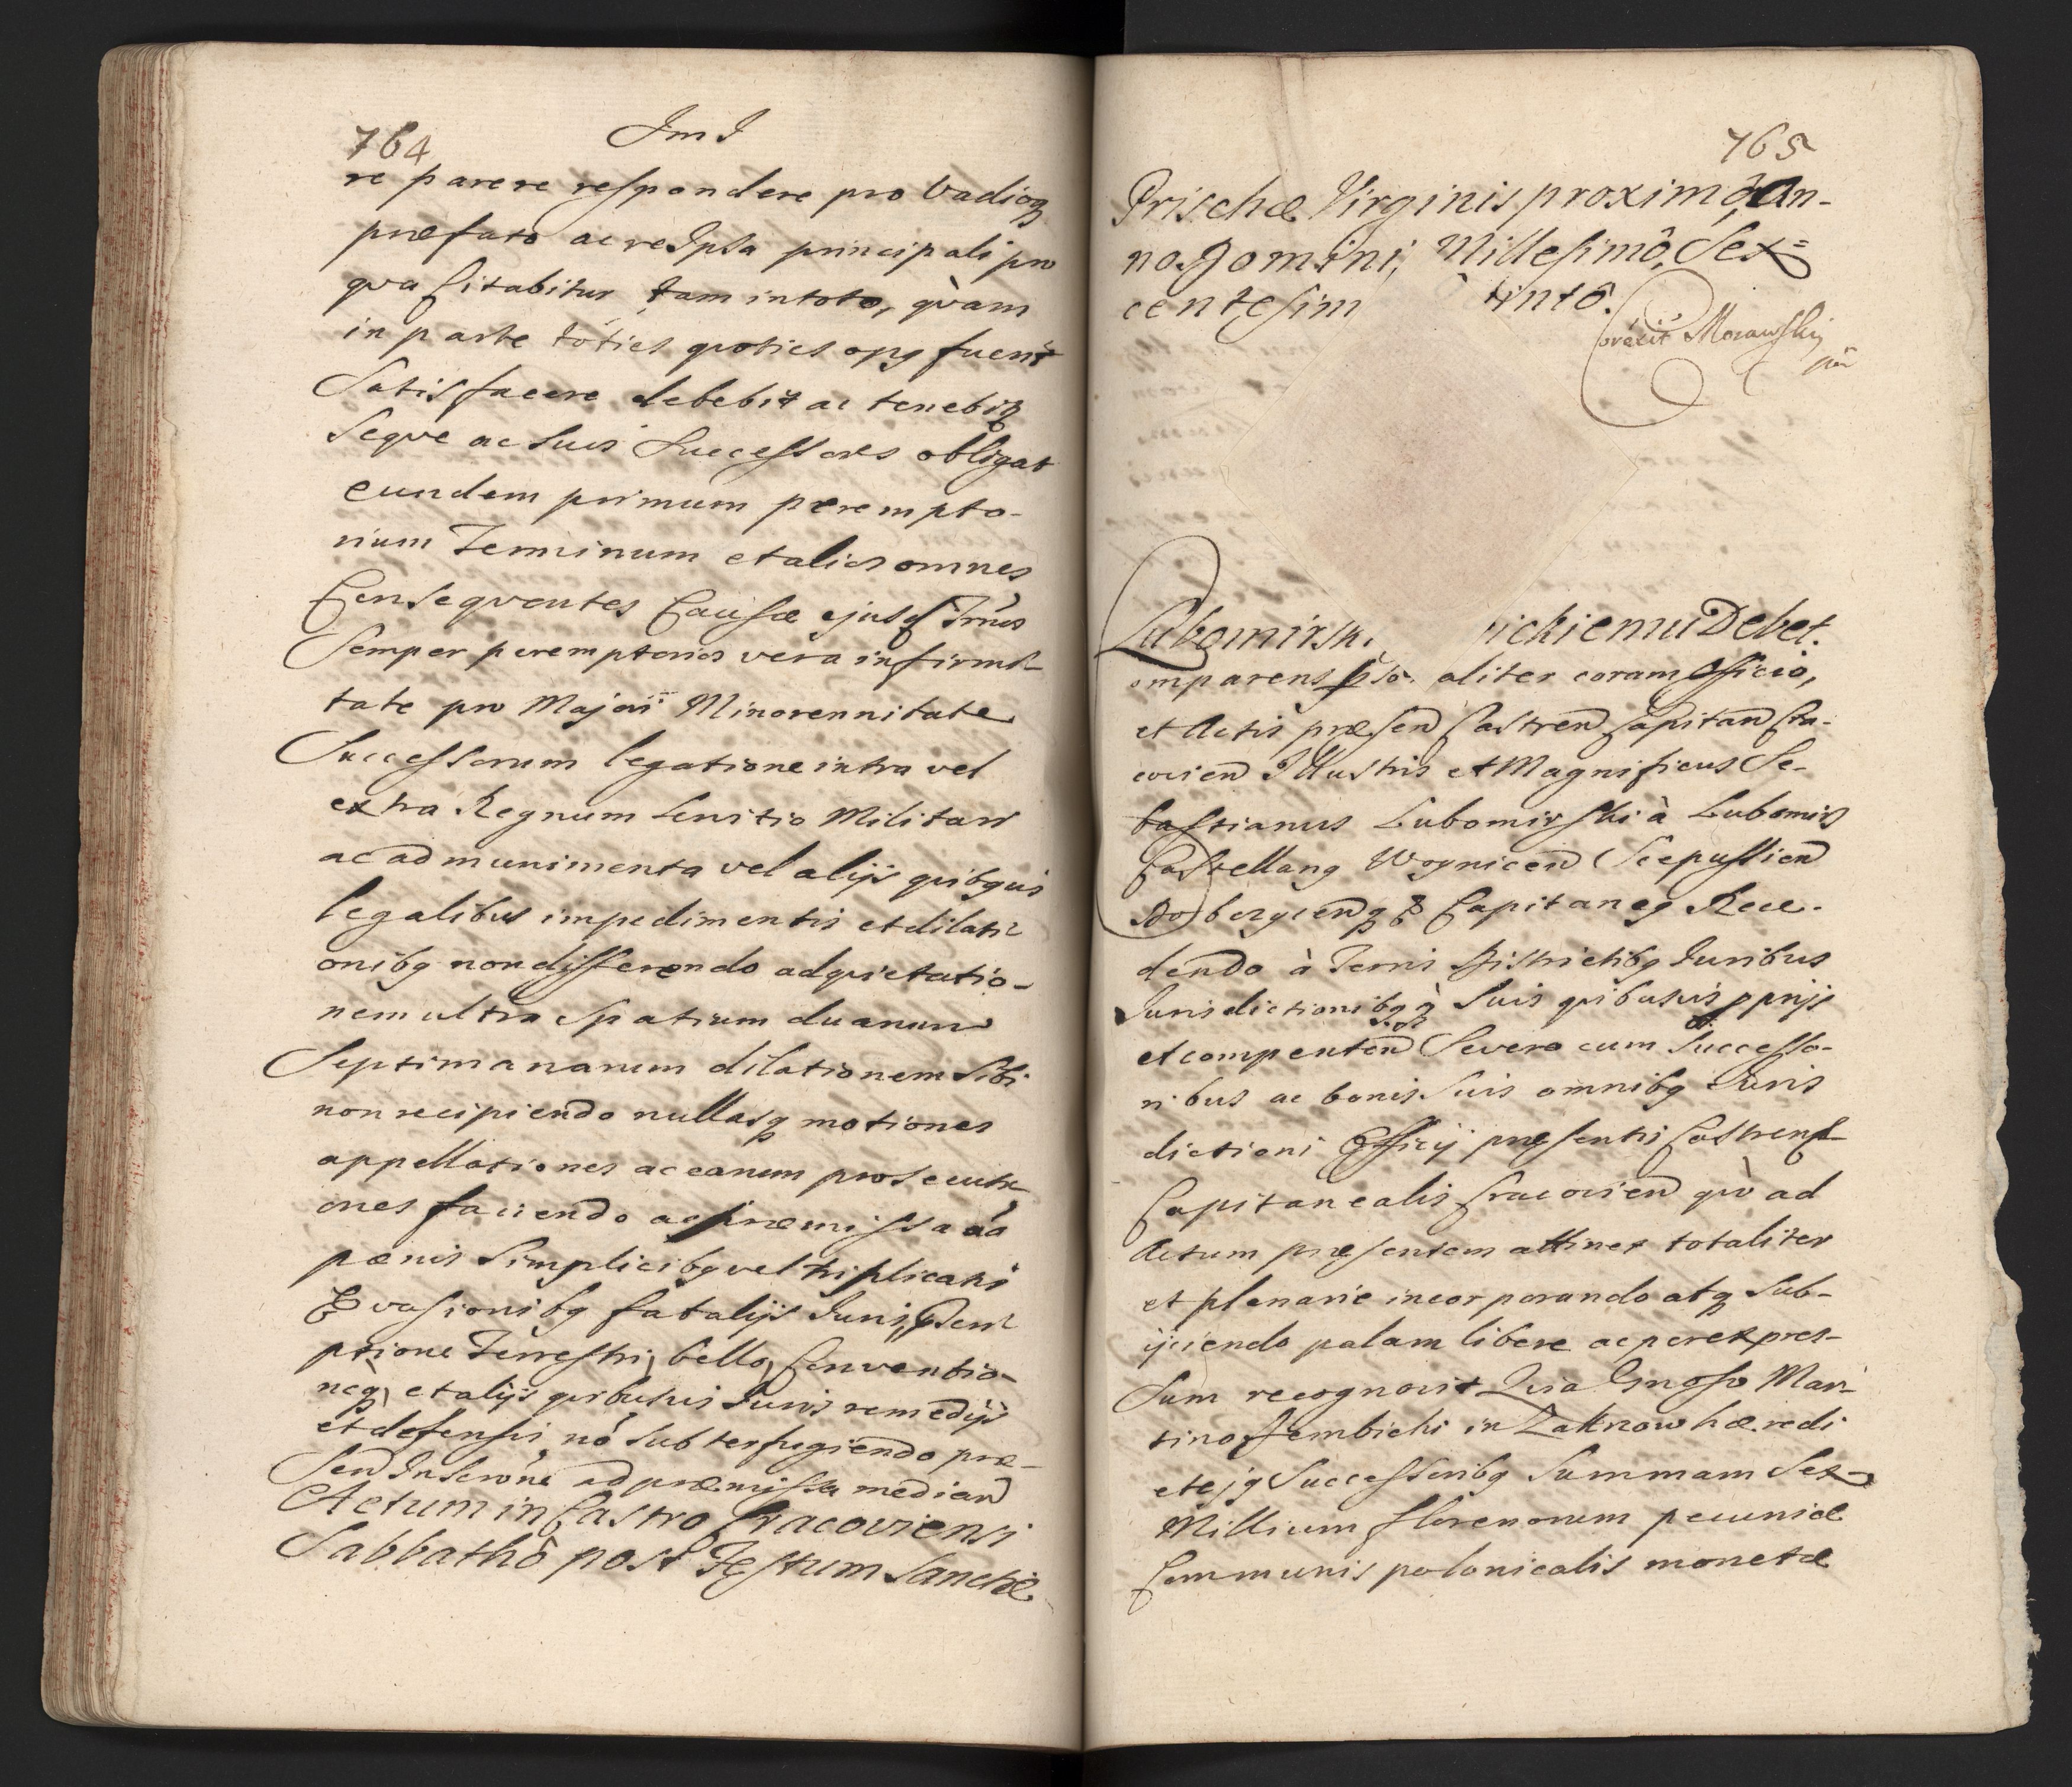 764
ImI
re parere respondere pro Vadioq
præfato ac re Ipsa principali pro
qua Citabitur tam in toto, quàm
in parte toties quoties opg fuerit
Satisfacere debebit ac tenebitq
Seque ac Suis Successores obligat
eundem primum perempto-
rium Terminum et alios omnes
Consequentes Causæ ejusq
Semper peremptorios vera infirmi-
tate pro Majori Minorennitate
Successorum legatione intra vel
extra Regnum Servitio Militari
ac ad munimenta vel alijs quibgvis
legalibus impedimentis et dilati-
onibg non differendo ad quietatio-
nem ultra Spatium duarum
Septimanarum dilationem Sibi
non recipiendo nullasq motiones
appellationes ac earum prosecuti-
ones faciendo ac præmissa
pænis Simplicibg vel triplicatis
Evasionibg fatalijs Juris,
ptione Terrestri, bello, Conventio-
neq, et alijs quibusvis Juris remedijs
et defensis nō Subterfugiendo præ-
Sen ad præmissa median
Actum in Castro Cracoviensi
Sabbathô post Festum Sanctæ
765
Prischæ Virginis proximô, An-
no Domini, Millesimô, Sex=
centesim intô.
Corexit Morawskij
Lubomirsk ickiemu Debet.
omparens aliter coram Officio,
et Actis præsen Castren Capitan Cra-
covien Illustris et Magnificus Se-
bastianus Lubomirski à Lubomir
Castellang Woynicen Scepussien
Dobczycenq & Capitaneg Rece-
dendo à Terris Districtibg Juribus
Jurisdictionibgq Suis quibusvis pprijs
et competen Se vero cum Successo-
ribus ac bonis Suis omnibg Juris
dictioni Officij præsentis Castrens
Capitanealis Cracovien quò ad
Actum præsentem attinet totaliter
et plenarie incorporando atq Sub-
ijciendo palam libere ac per expres-
Sum recognovit Quia Gnoso Mar-
tino Dembicki in Zaktnow hæredi
et ejg Successoribg Summam Sex
Millium florenorum pecuniæ
Communis polonicalis monetæ